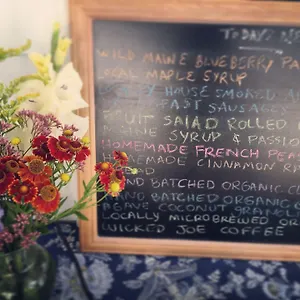 TODAY'S
WILD MAINE BLUEBERRY PA
LOCAL MAPLE SYRUP
HOUSE SMOKED
FAST SAUSAGES
FRUIT SALAD ROLLED
SYRUP & PASSION
HOMEMADE FRENCH
HOMEMADE CINNAMON
BATCHED ORGANIC
HAND BATCHED ORGANIC
AGAVE COCONUT GRANOLA
LOCALLY MICROBREWED OR
WICKED JOE COFFEE